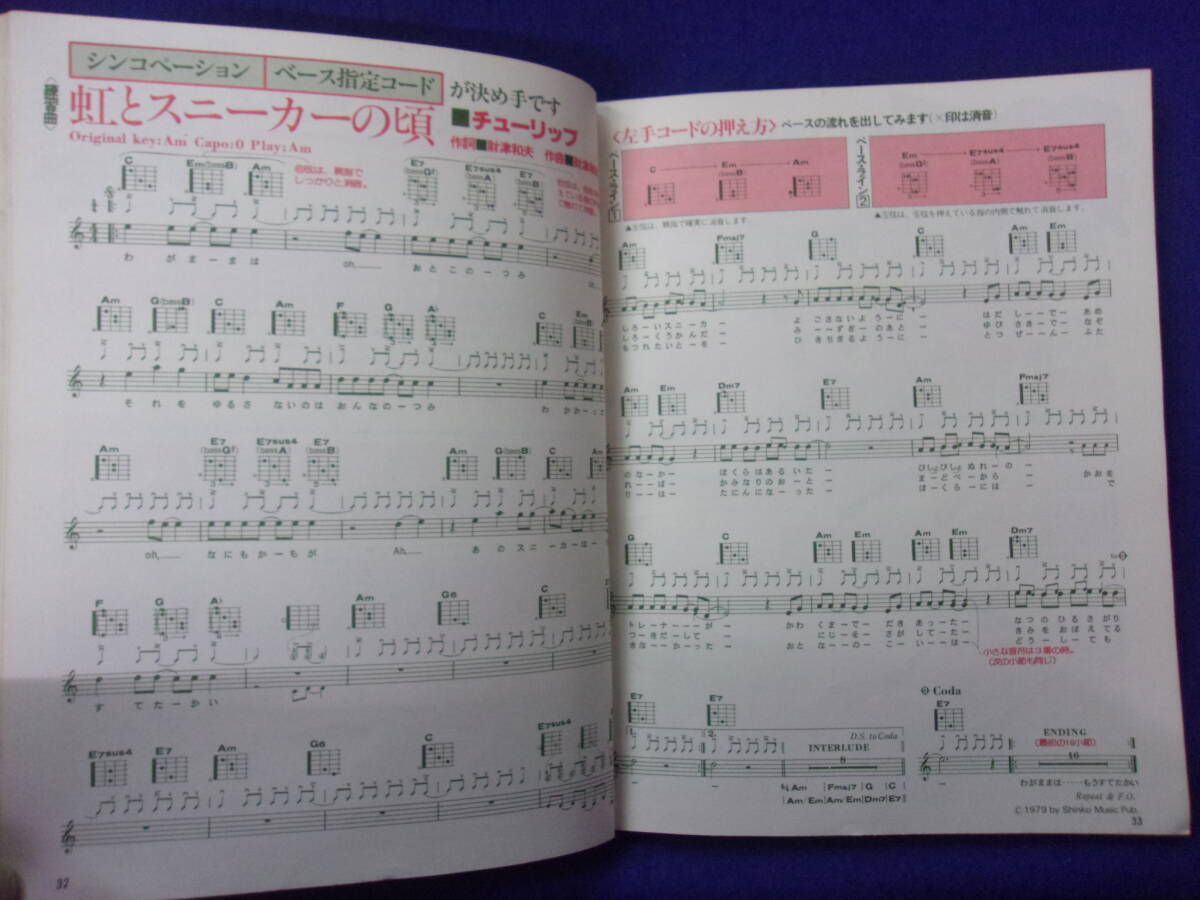 シンコペーション ベース指定コード が決め手です
〈練習曲〉
虹とスニーカーの頃
■チューリップ
Original key:Am Capo:0 Play:Am
作詞■財津和夫 作曲■財津
C Em(bassB) Am
⑥弦は、親指でしっかりと消音。
E7(bassG♯) E7sus4(bassA) E7(bassB)
わ が ま ー ま は oh, お と こ の ー つ み
Am G(bassB) C Am F G A♭ C Em(bassB)
そ れ を ゆ る さ な い の は お ん な の ー つ み わ か か ー っ
Am E7(bassG♯) E7sus4(bassA) E7(bassB) Am G(bassB) C Am
oh, な に も か ー も が Ah, あ の ス ニ ー カ ー は ー
F G A♭ Am G6 C
す て た ー か い
E7sus4 E7 Am G6 C E7sus4
32
〈左手コードの押え方〉 ベースの流れを出してみます(×印は消音)
ベース・ライン① C Em(bassB) Am
ベース・ライン② Em(bassG♯) E7sus4(bassA) E7sus4(bassB)
▲⑥弦は、親指で確実に消音します。
▲⑤弦は、⑥弦を押えている指の内側で触れて消音します。
Am Fmaj7 G C Am Em
し ろ ー い ス ニ ー カ ー よ ご さ な い よ う ー に ー は だ し ー ー で ー あ め
し ろ ー く う か ん だ ー み ー ー ず ぎ ー の あ と ー ゆ び さ き ー で ー な ぞ
も つ れ た い と ー を ー ひ き ち ぎ る よ う ー に ー と つ ぜ ー ー ん ー ふ た
Am Em Dm7 E7 Am Fmaj7
の な ー か ー ぼ く ら は あ る い た ー び しょ び しょ ぬ れ ー の ー か お を
れ ー ー ば ー か み な り の お ー と ー ま ー ど べ ー か ら ー
り ー ー は ー た に ん に な ー っ た ー ぼ ー く ら ー に は ー で
G C Am Em Am Em Dm7 to
ト レ ー ナ ー ー が ー か わ く ま ー で ー だ き あ っ ー た ー な つ の ひ る さ が り
つ ー き だ ー し て ー に じ ー を ー さ が し て ー た ー き み を お ぼ え て る
き な ー か ー っ た ー お と な ー の ー こ ー い ー ー は ー ど う ー し ー て も
小さな音符は3番の時。
(次の小節も同じ)
E7 E7 Coda E7
1. 2. D.S. to Coda
INTERLUDE
8
ENDING
(最初の16小節)
16
Am |Fmaj7 |G |C
|Am/Em|Am/Em|Dm7|E7|
わがままは……もうすてたかい
Repeat & F.O.
© 1979 by Shinko Music Pub.
33